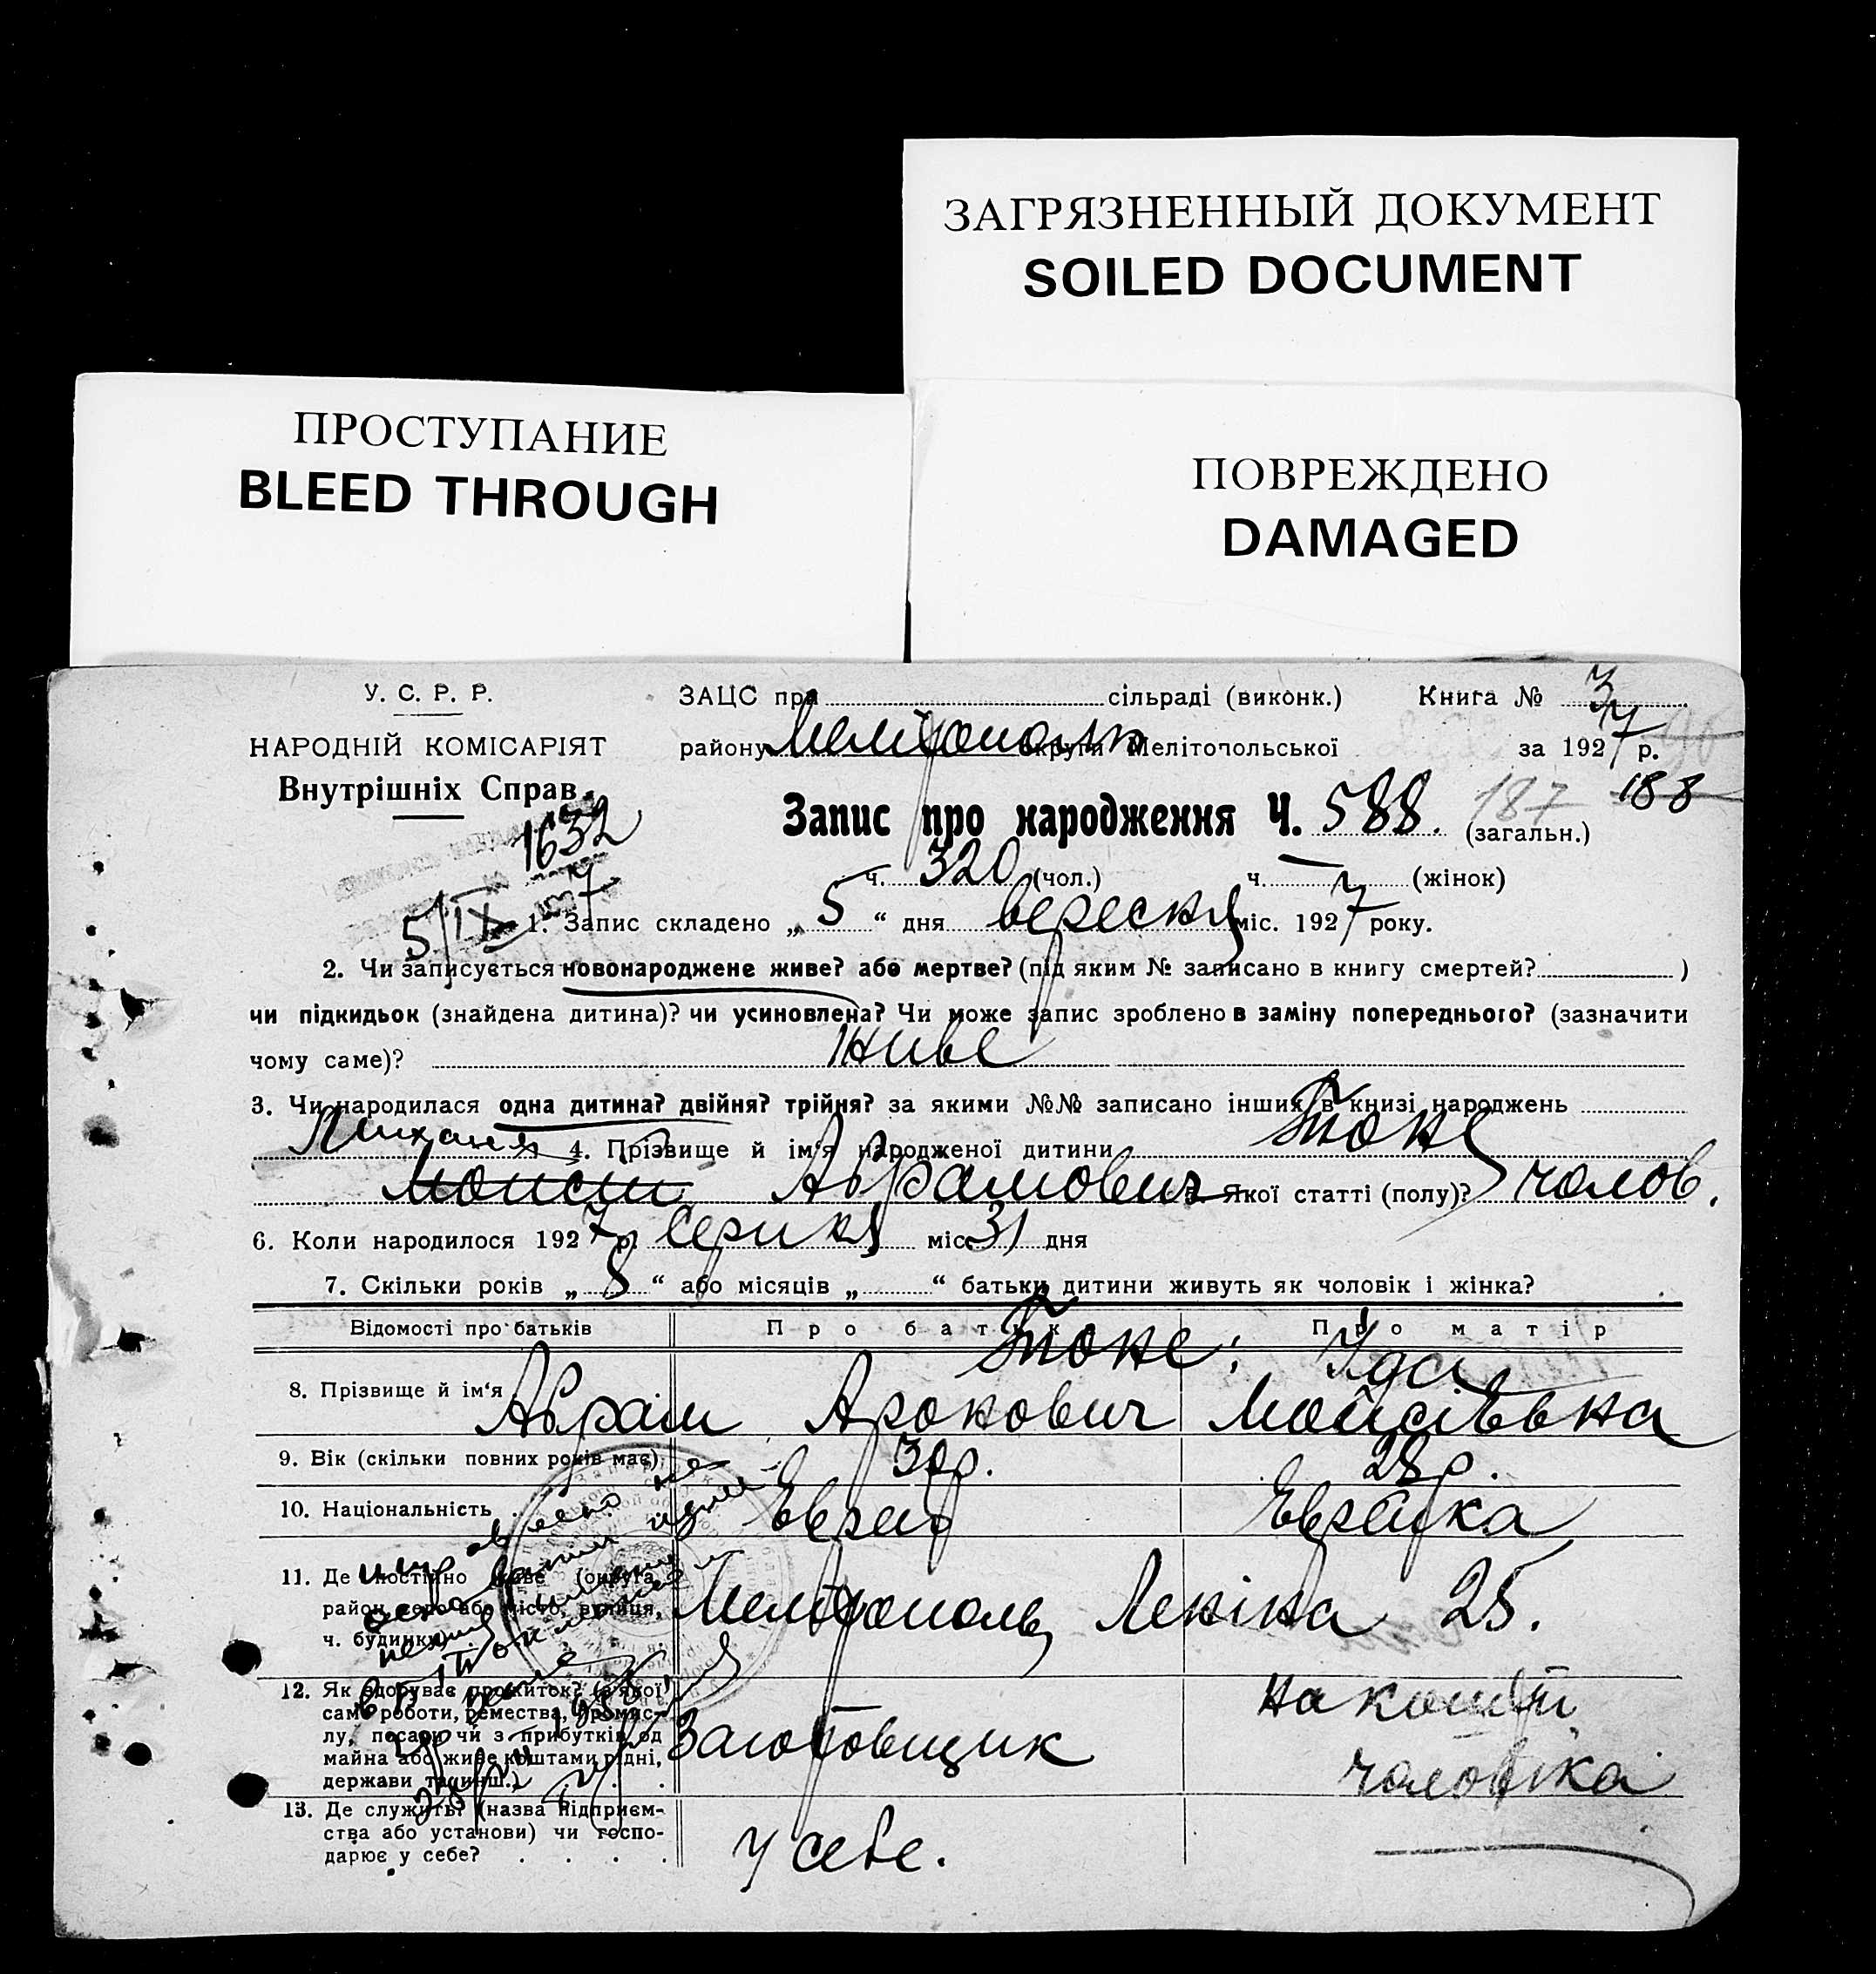 ЗАГРЯЗНЕННЫЙ ДОКУМЕНТ
SOILED DOCUMENT
ПРОСТУПАНИЕ
BLEED THROUGH
ПОВРЕЖДЕНО
DAMAGED
У. С. Р. Р.
НАРОДНІЙ КОМІСАРІЯТ
Внутрішніх Справ.
ЗАЦС при сільраді (виконк.) Книга № 3
району Мелітополь округи Мелітопольської за 1927 р.
1632
Запис про народження Ч. 588. (загальн.) 187 188
ч. 320 (чол.) ч. — (жінок)
5/IX 1. Запис складено „ 5 “ дня вересня міс. 1927 року.
2. Чи записується новонароджене живе? або мертве? (під яким № записано в книгу смертей? )
чи підкидьок (знайдена дитина)? чи усиновлена? Чи може запис зроблено в заміну попереднього? (зазначити
чому саме)? живе
3. Чи народилася одна дитина? двійня? трійня? за якими №№ записано інших в книзі народжень
4. Прізвище й ім'я народженої дитини
Абрамович Якої статті (полу)? чолов.
6. Коли народилося 1927 р. Серпня міс. 31 дня
7. Скільки років „ 8 “ або місяців „ “ батьки дитини живуть як чоловік і жінка?
Відомості про батьків Про батька Про матір
8. Прізвище й ім'я Абрам Аронович Мойсіївна
9. Вік (скільки повних років має) 30р. 28р.
10. Національність Еврей Еврейка
11. Де постійно живе (округа,
район, село або місто, вулиця,
ч. будинку) Мелітополь, Леніна 25.
12. Як здобуває прожиток? (з якої
саме роботи, ремества, промис-
лу, посади чи з прибутків од
майна або живе коштами рідні,
держави та инш.) Заготовщик на кошти чоловіка
13. Де служить? (назва підприєм-
ства або установи) чи госпо-
дарює у себе? У себе.